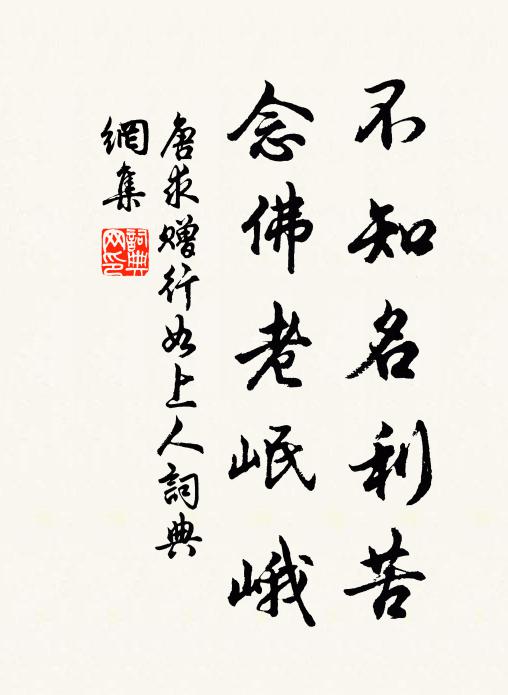 不知名利苦
念佛老岷峨
唐求贈行如上人詞典
網集
詞典網印